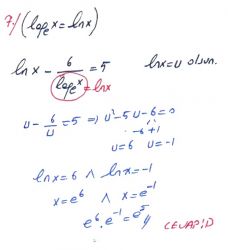 7-/ (log_e x = lnx)
lnx - 6/log_e x = 5   lnx=u olsun.
= lnx
u - 6/u = 5 ⇒ u² - 5u - 6 = 0
-6 +1
u=6 u=-1
lnx = 6 ∧ lnx = -1
x = e⁶ ∧ x = e⁻¹
e⁶ . e⁻¹ = e⁵ //
CEVAP: D